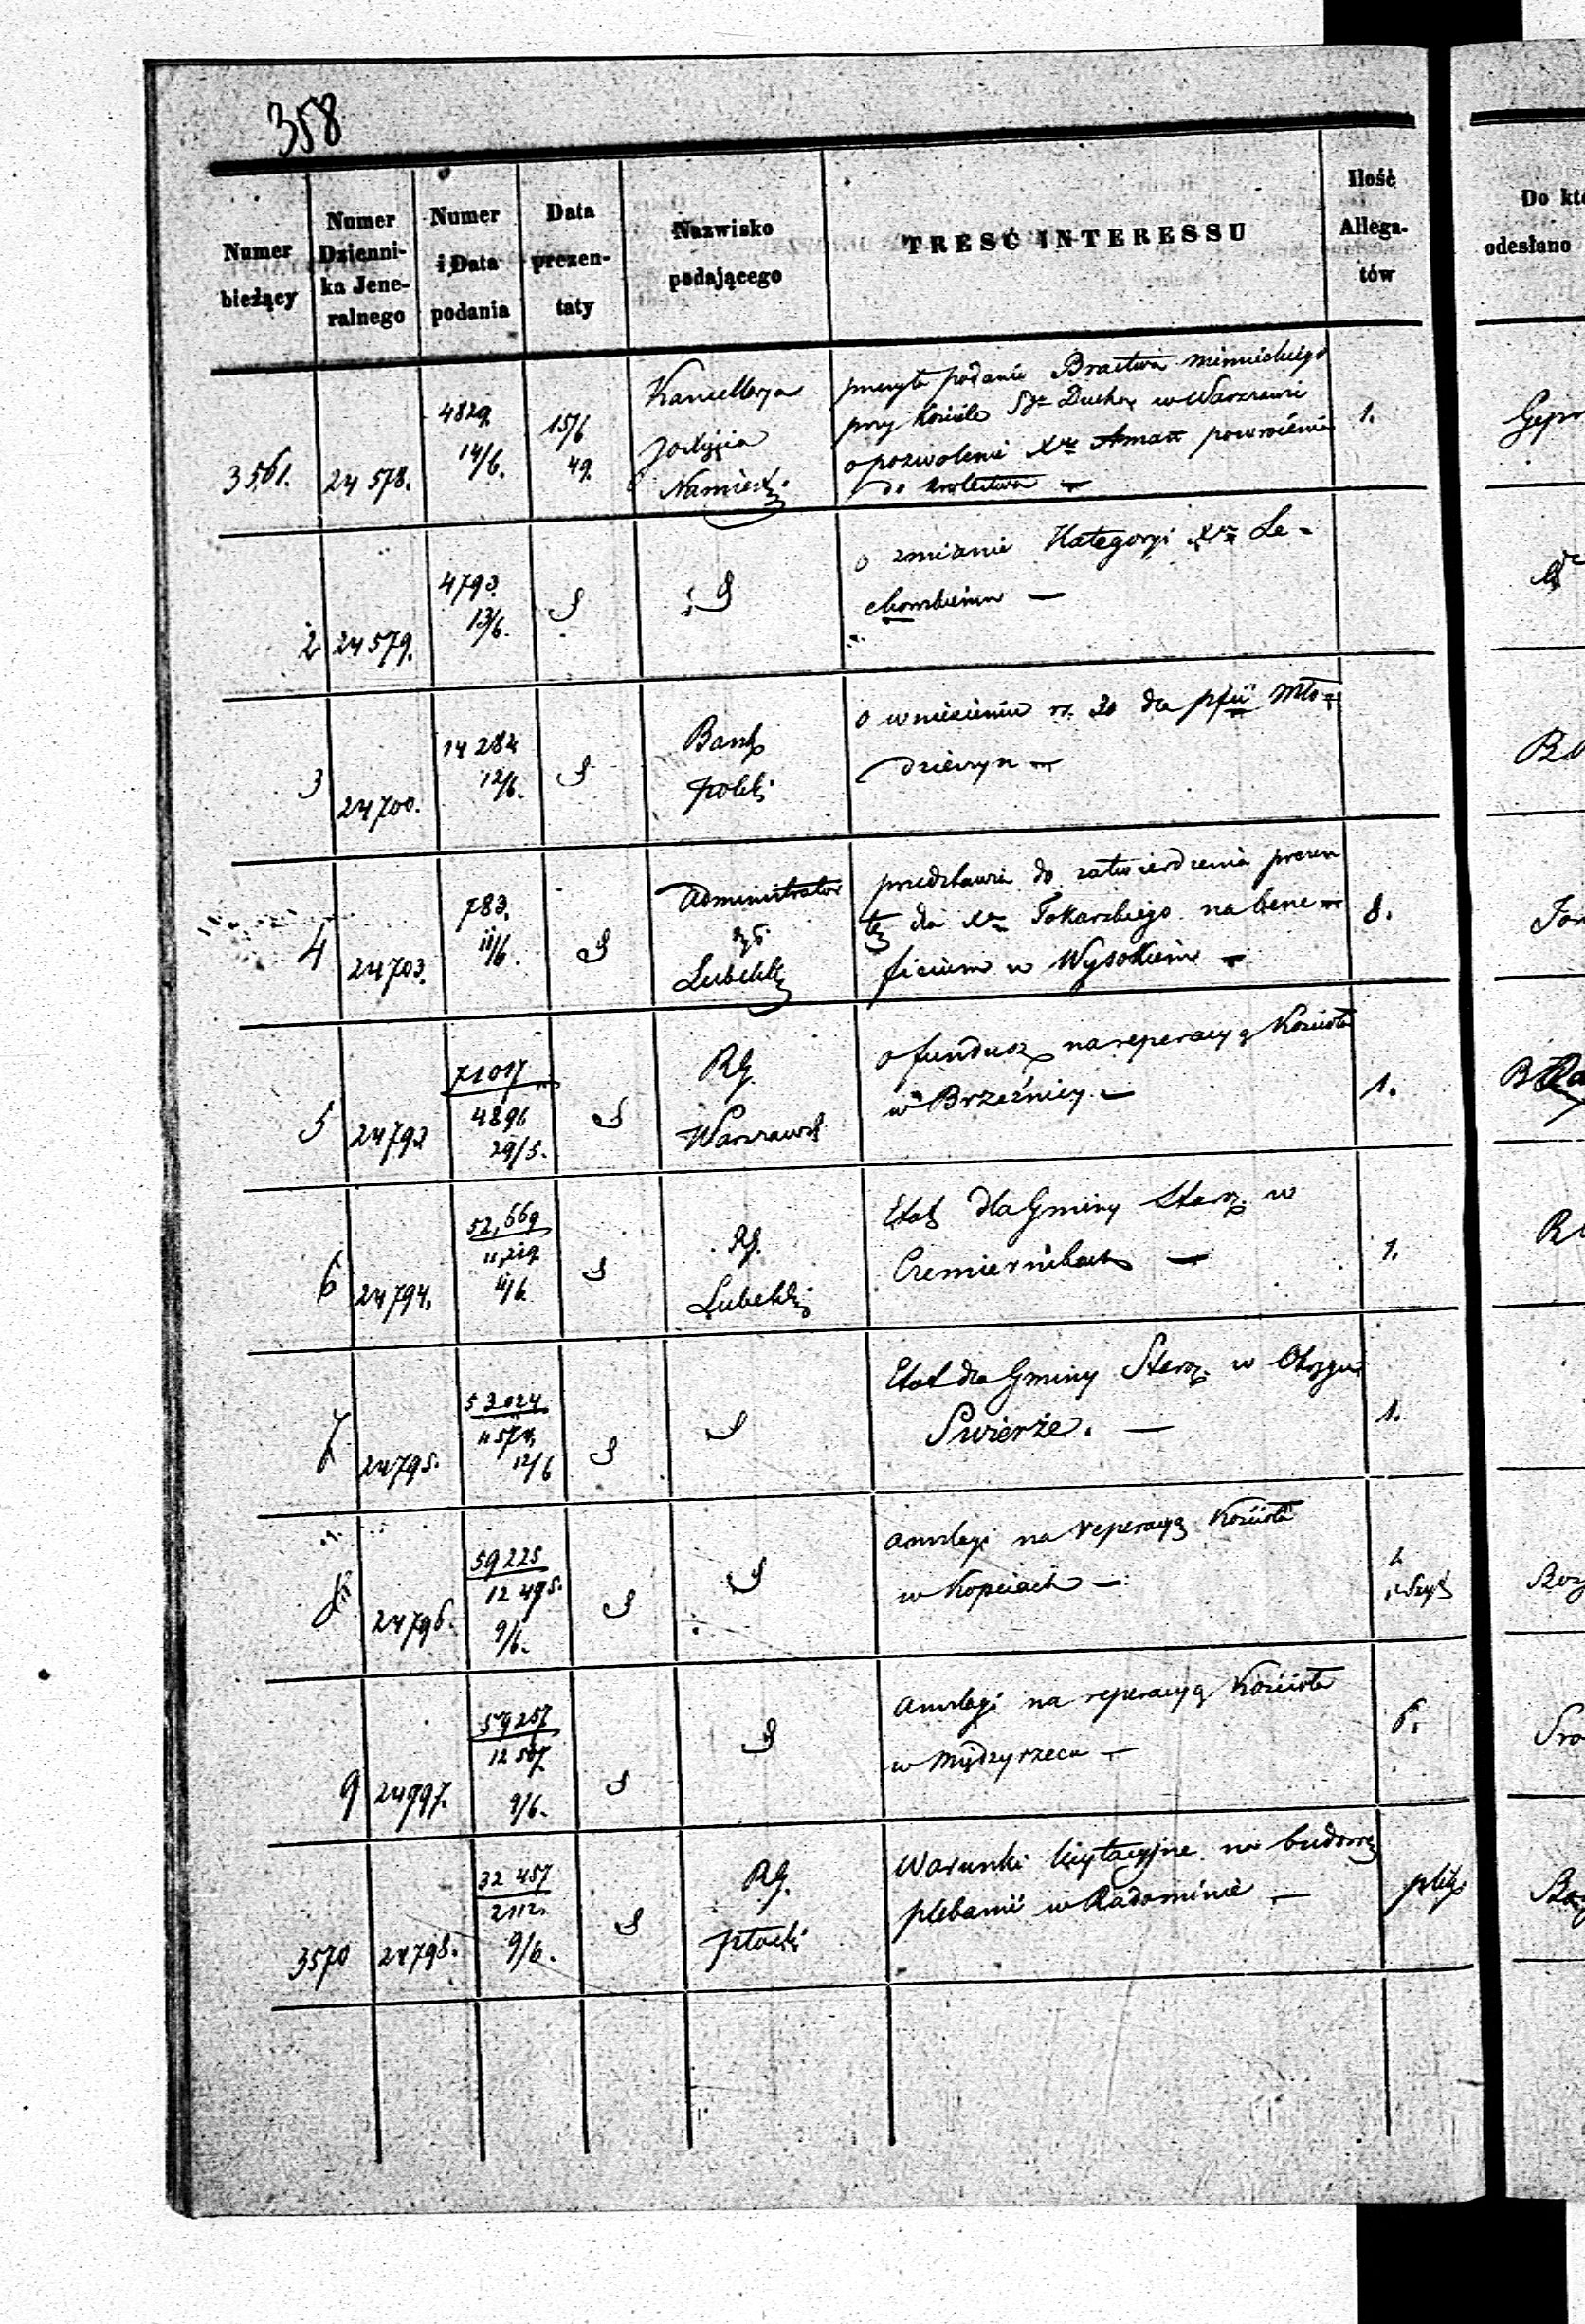 358
Numer
bieżący
Numer
Dzienni-
ka Jene-
ralnego
Numer
i Data
podania
Data
prezen-
taty
Nazwisko
podającego
TREŚĆ INTERESSU
Ilość
Allega-
tów
Do któ
odesłano
3561.
24578.
4829.
14/6.
15/6
49.
Kancellarya
Xięcia
Namiest.
przesyła podanie Bractwa niemieckiego
przy Kościele Sgo Ducha w Warszawie
o pozwolenie Xdu Aman powrócenia
do Królestwa —
1.
2
24579.
4793.
13/6.
o zmianie Kategoryi Xa Le-
chowskiemu —
3
24700.
14282
12/6.
Bank
Polski
o wniesieniu rs. 30 dla pfii Mło-
dzieszyn —
4
24703.
783.
11/6.
Administrator
Lubelski
przedstawia do zatwierdzenia prezen
tę dla Xa Tokarskiego na bene-
ficium w Wysokiem —
8.
5
24793
71017
4896
29/5.
RG.
Warszawsk
o fundusz na reperacyą Kościoła
w Brzeźnicy —
1.
6
24794.
52,669
11,219
11/6
RG.
Lubelski
Etat dla Gminy Staroz. w
Czemiernikach —
1.
7
24795.
53024
11574.
12/6
Etat dla Gminy Staroz. w Okręgu
Swierże. —
1.
8
24796.
59225
12495.
9/6.
anszlagi na reperacyą Kościoła
w Kopciach —
9
24797.
59257
12507
9/6.
anszlagi na reperacyą Kościoła
w Międzyrzecu —
6.
3570
24798.
32457
2112.
9/6.
RG.
Płocki
Warunki licytacyjne na budowę
plebanii w Radominie —
plik